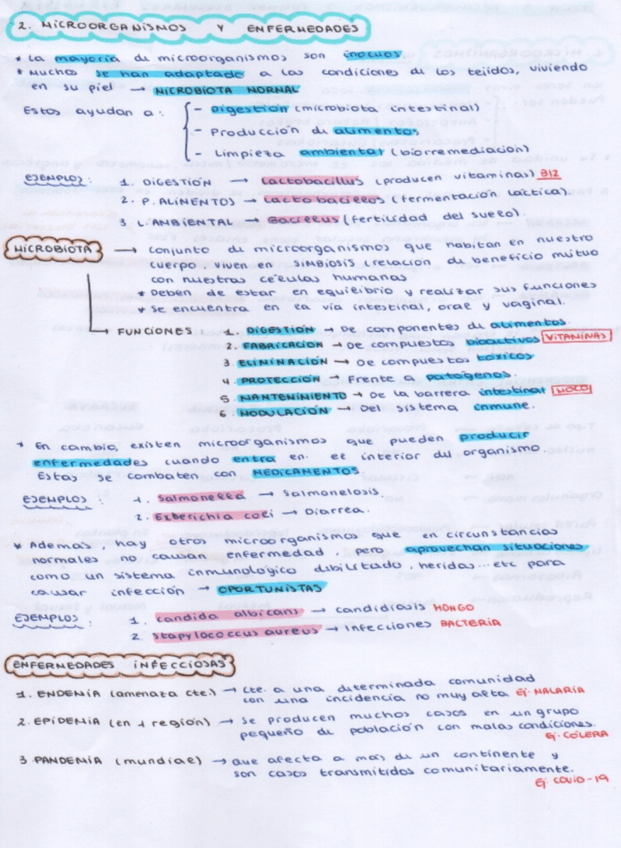 2. MICROORGANISMOS Y ENFERMEDADES
* La mayoría de microorganismos son inocuos
* Muchos se han adaptado a las condiciones de los tejidos, viviendo
en su piel → MICROBIOTA NORMAL
Estos ayudan a:
- Digestión (microbiota intestinal)
- Producción de alimentos
- Limpieza ambiental (biorremediación)
EJEMPLOS: 1. DIGESTIÓN → Lactobacillus (producen vitaminas) B12
2. P. ALIMENTOS → Lactobacillos (fermentación láctica).
3. L. AMBIENTAL → Bacillus (fertilidad del suelo).
MICROBIOTA → Conjunto de microorganismos que habitan en nuestro
cuerpo. Viven en SIMBIOSIS (relación de beneficio mútuo
con nuestras células humanas
* Deben de estar en equilibrio y realizar sus funciones
* Se encuentra en la vía intestinal, oral y vaginal.
FUNCIONES: 1. DIGESTIÓN → De componentes de alimentos
2. FABRICACIÓN → De compuestos bioactivos VITAMINAS
3. ELIMINACIÓN → De compuestos tóxicos
4. PROTECCIÓN → Frente a patógenos.
5. MANTENIMIENTO → De la barrera intestinal MOCO
6. MODULACIÓN → Del sistema inmune.
* En cambio, existen microorganismos que pueden producir
enfermedades cuando entra en el interior del organismo.
Estas se combaten con MEDICAMENTOS
EJEMPLOS: 1. Salmonella → Salmonelosis.
2. Escherichia coli → Diarrea.
* Además, hay otros microorganismos que en circunstancias
normales no causan enfermedad, pero aprovechan situaciones
como un sistema inmunológico debilitado, heridas... etc para
causar infección → OPORTUNISTAS
EJEMPLOS: 1. candida albicans → candidiasis HONGO
2. Stapylococcus aureus → Infecciones BACTERIA
ENFERMEDADES INFECCIOSAS
1. ENDEMIA (amenaza cte) → Cte. a una determinada comunidad
con una incidencia no muy alta Ej: MALARIA
2. EPIDEMIA (en 1 región) → Se producen muchos casos en un grupo
pequeño de población con malas condiciones.
Ej: CÓLERA
3. PANDEMIA (mundial) → Que afecta a más de un continente y
son casos transmitidos comunitariamente.
Ej: COVID-19